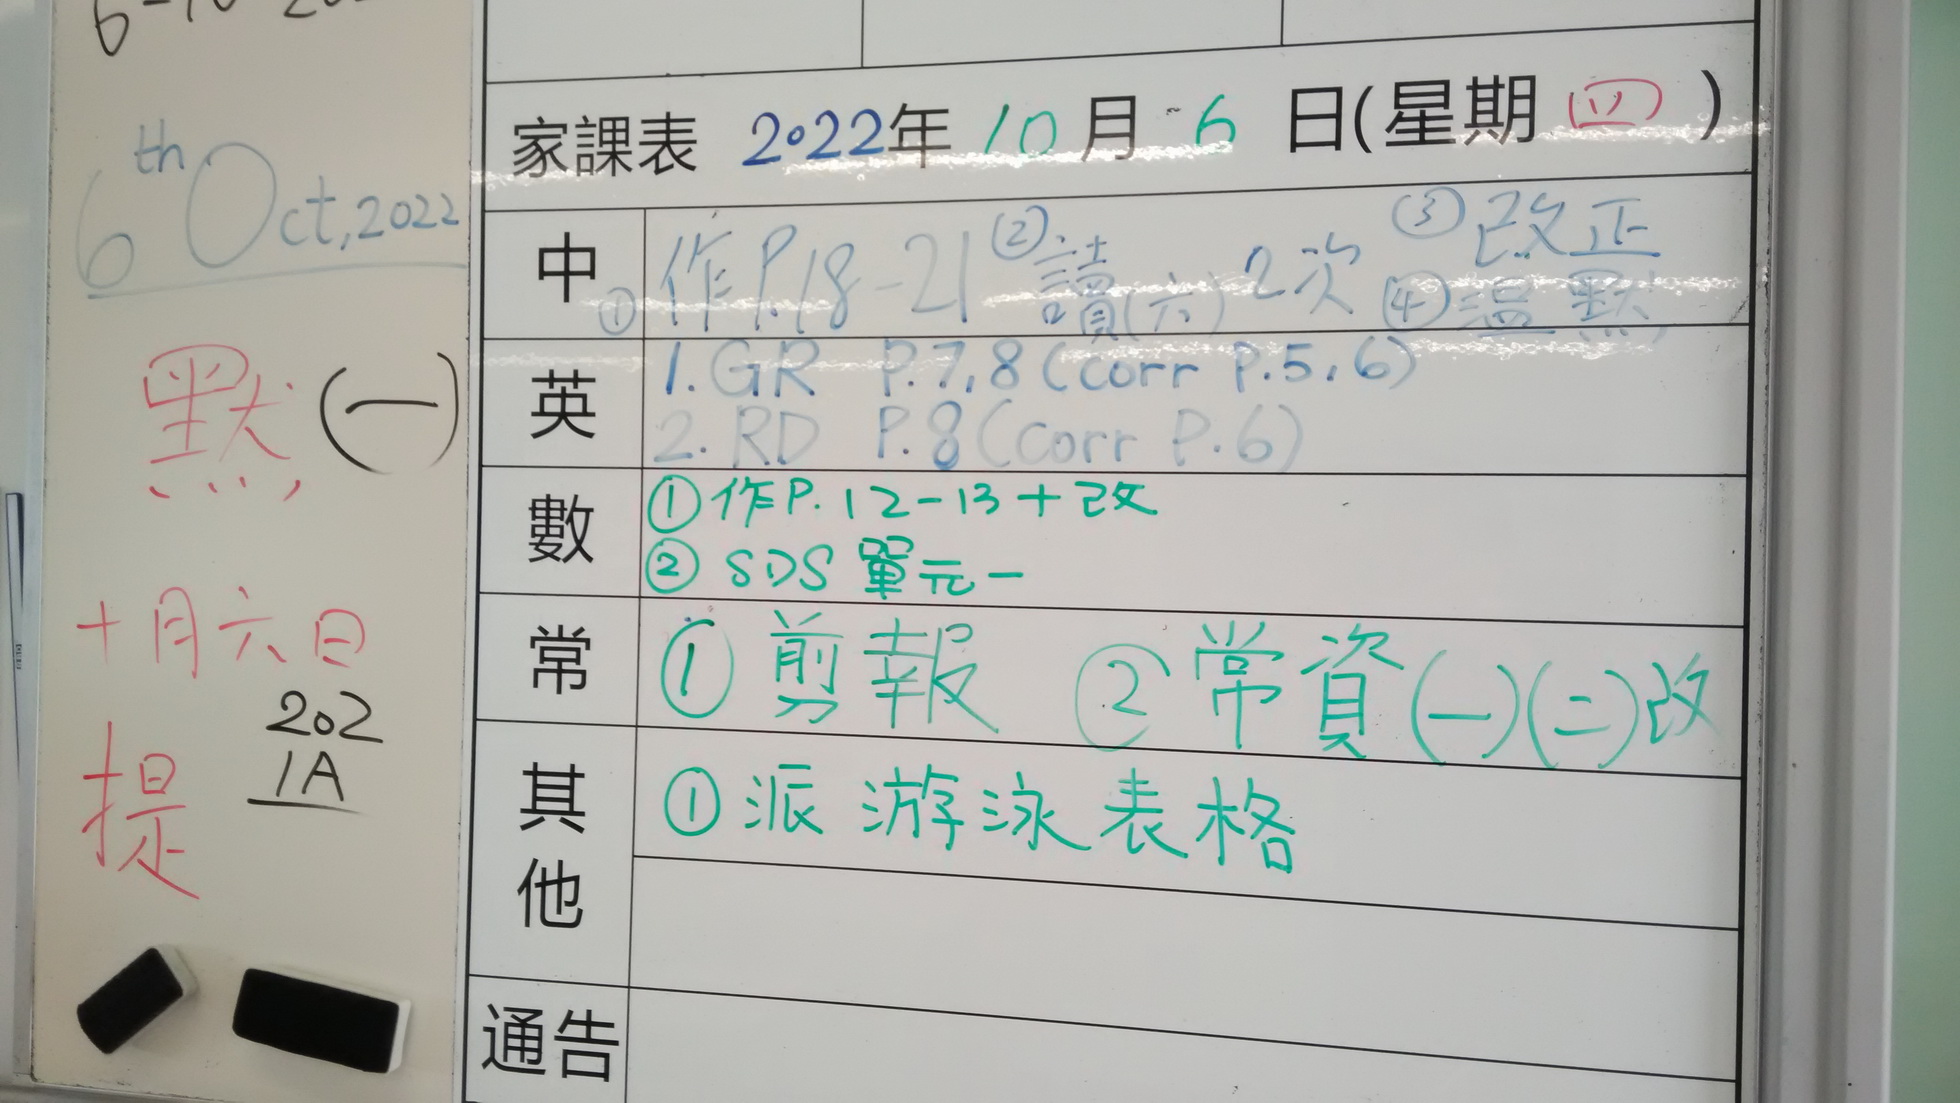 6th Oct, 2022
默(一)
十月六日
202
1A
提
家課表 2022年 10月 6日(星期四)
中 ①作P.18-21 ②讀(六)2次 ③改正 ④溫默
英 1. GR P.7,8 (corr P.5,6)
2. RD P.8 (corr P.6)
數 ①作P.12-13+改
②SDS 單元一
常 ①剪報 ②常資(一)(二)改
其他 ①派游泳表格
通告